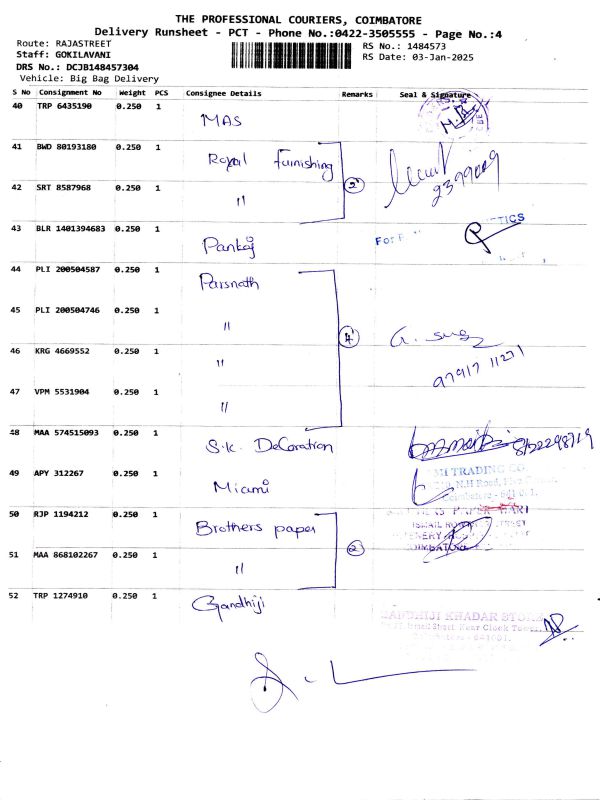 THE PROFESSIONAL COURIERS, COIMBATORE
Delivery Runsheet - PCT - Phone No.:0422-3505555 - Page No.:4
Route: RAJASTREET
Staff: GOKILAVANI
DRS No.: DCJB148457304
Vehicle: Big Bag Delivery
RS No.: 1484573
RS Date: 03-Jan-2025
S No Consignment No Weight PCS Consignee Details Remarks Seal & Signature
40 TRP 6435190 0.250 1 MAS
41 BWD 80193180 0.250 1 Royal furnishing
42 SRT 8587968 0.250 1 "
2
43 BLR 1401394683 0.250 1 Pankaj
For
44 PLI 200504587 0.250 1 Parsnath
45 PLI 200504746 0.250 1 "
4
46 KRG 4669552 0.250 1 "
97917 11271
47 VPM 5531904 0.250 1 "
48 MAA 574515093 0.250 1 S.K. Decoration
49 APY 312267 0.250 1 Miami
MI TRADING CO
N.H Road,
Coimbatore - 641 001.
50 RJP 1194212 0.250 1 Brothers paper
PAPER MART
ISMAIL STREET
COIMBATORE
51 MAA 868102267 0.250 1 "
2
52 TRP 1274910 0.250 1 Gandhiji
GANDHIJI KHADAR STORE
Street, Near Clock Tower,
641001.